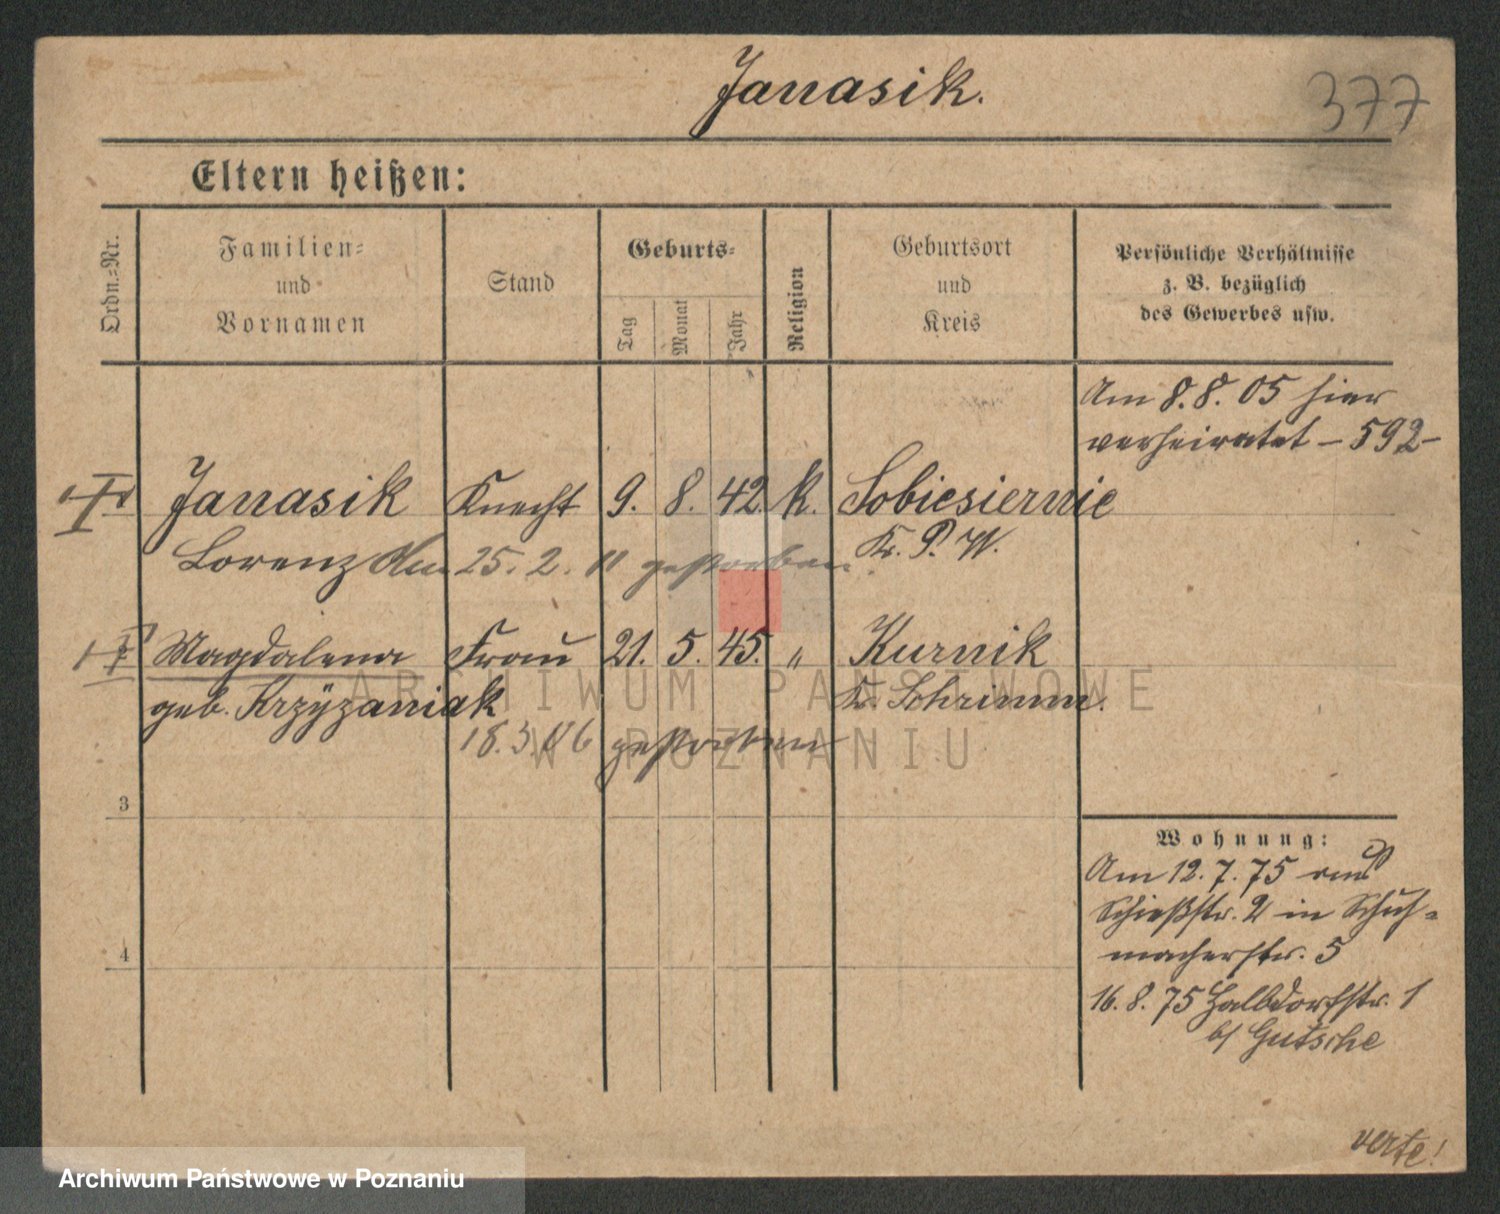 Janasik.
377
Eltern heißen:
Ordn.=Nr.
Familien=
und
Vornamen
Stand
Geburts=
Tag
Monat
Jahr
Religion
Geburtsort
und
Kreis
Persönliche Verhältnisse
z. B. bezüglich
des Gewerbes usw.
Am 8.8.05 hier
verheiratet – 592 –
Janasik Knecht 9. 8. 42. k. Sobiesiernie
Lorenz Am 25. 2. 11 gestorben. Kr. P. W.
Magdalena Frau 21. 5. 45. " Kurnik
geb. Krzyzaniak Kr. Schrimm.
18.3.06 gestorben
3
4
Wohnung:
Am 12. 7. 75 aus
Schießstr. 2 in Schuh=
macherstr. 5
16. 8. 75 Halbdorfstr. 1
b/ Gutsche
verte!
ARCHIWUM PAŃSTWOWE
W POZNANIU
Archiwum Państwowe w Poznaniu